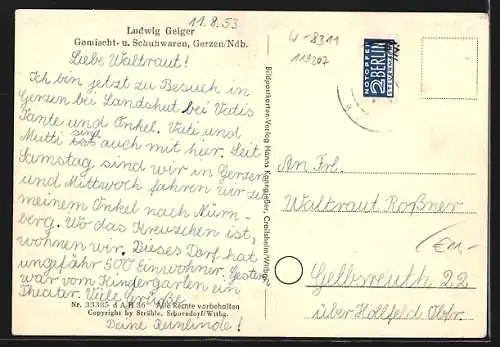 11.8.53
Ludwig Geiger
Gemischt- u. Schuhwaren, Gerzen/Ndb.
Liebe Waltraut!
Ich bin jetzt zu Besuch in
Gerzen bei Landshut bei Vatis
Tante und Onkel. Vati und
Mutti sind auch mit hier. Seit
Samstag sind wir in Gerzen
und Mittwoch fahren wir zu
meinem Onkel nach Nürn-
berg. Wo das Kreuzchen ist,
wohnen wir. Dieses Dorf hat
ungefähr 500 Einwohner. Gestern
war vom Kindergarten ein
Theater. Viele Grüße
Nr. 33385 d A.H 36 Alle Rechte vorbehalten
Copyright by Strähle, Schorndorf/Wttbg.
Deine Reinlinde!
Bildpostkarten-Verlag Hanns Kanngießer, Crailsheim/Wttbg.
W-8311
119207
NOTOPFER
2 BERLIN
STEUERMARKE
An Frl.
Waltraut Roßner
€11,-
Gelbsreuth 22
über Hollfeld Obfr.